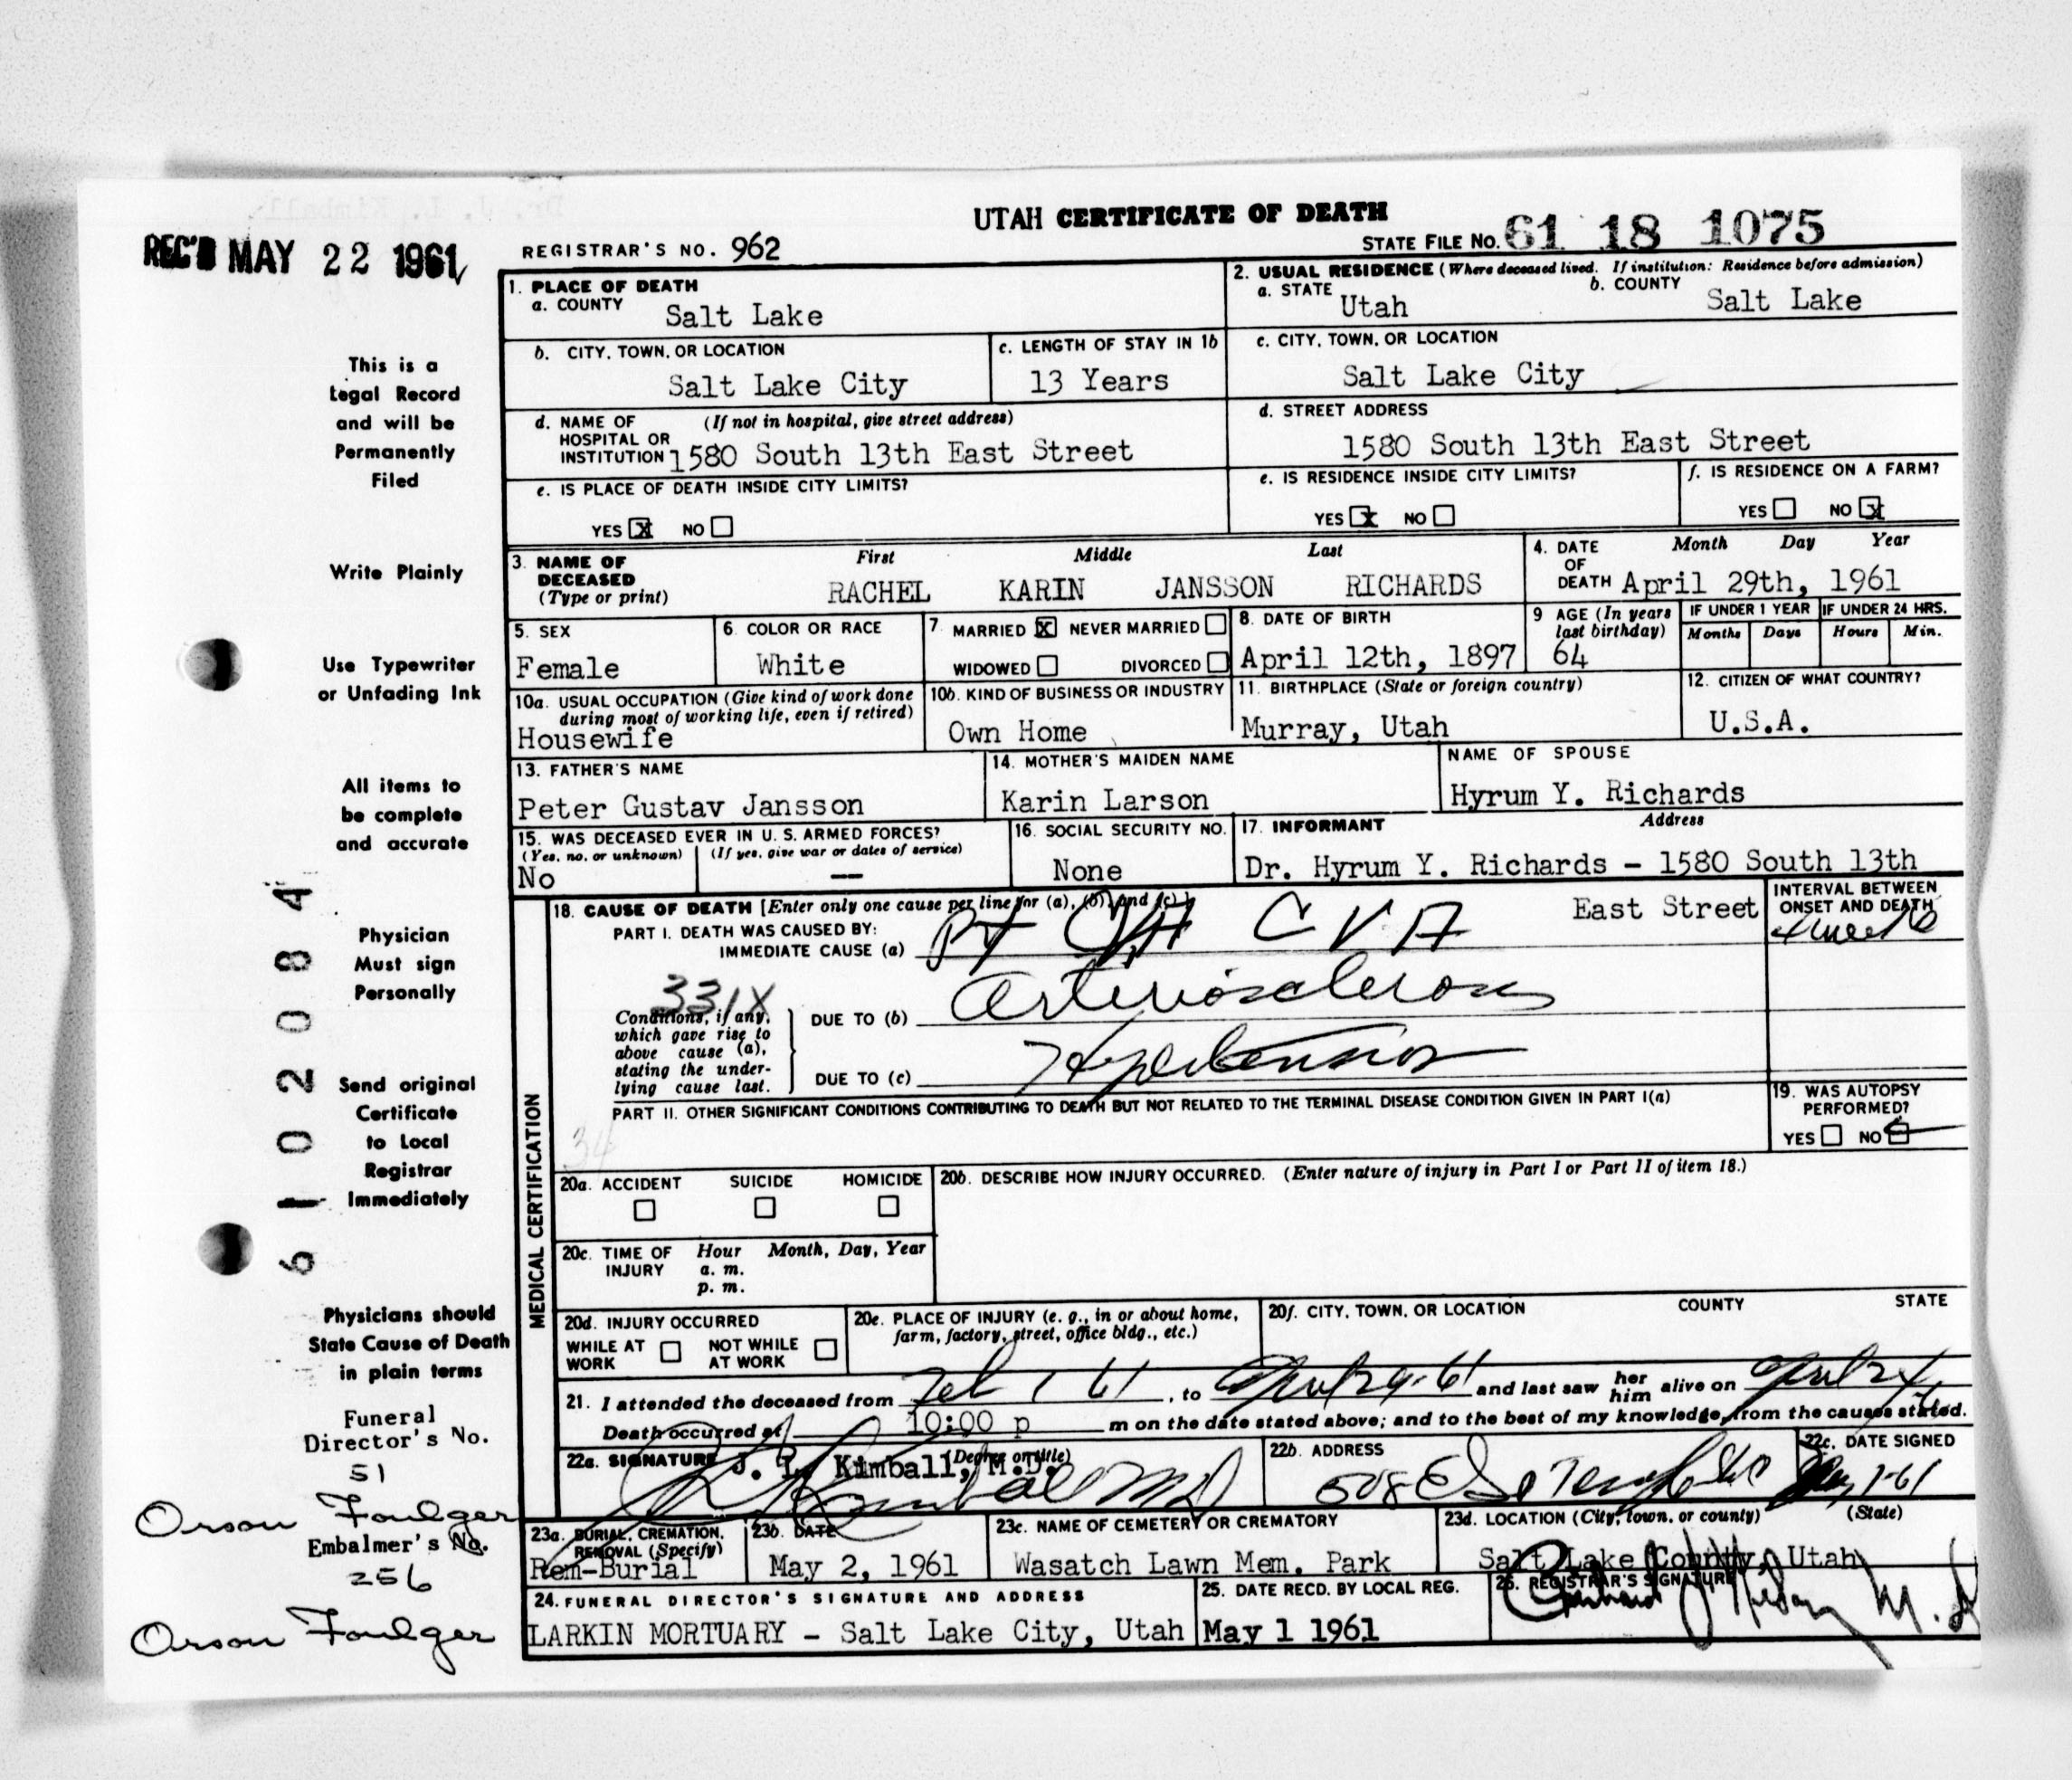 UTAH CERTIFICATE OF DEATH
REC'D MAY 22 1961
REGISTRAR'S NO. 962
STATE FILE NO. 61 18 1075
1. PLACE OF DEATH
a. COUNTY Salt Lake
2. USUAL RESIDENCE (Where deceased lived. If institution: Residence before admission)
a. STATE Utah b. COUNTY Salt Lake
b. CITY, TOWN, OR LOCATION Salt Lake City
c. LENGTH OF STAY IN 1b 13 Years
c. CITY, TOWN, OR LOCATION Salt Lake City
d. NAME OF HOSPITAL OR INSTITUTION (If not in hospital, give street address) 1580 South 13th East Street
d. STREET ADDRESS 1580 South 13th East Street
e. IS PLACE OF DEATH INSIDE CITY LIMITS?
YES X NO
e. IS RESIDENCE INSIDE CITY LIMITS?
YES X NO
f. IS RESIDENCE ON A FARM?
YES NO X
3. NAME OF DECEASED (Type or print)
First Middle Last
RACHEL KARIN JANSSON RICHARDS
4. DATE OF DEATH Month Day Year
April 29th, 1961
5. SEX Female
6. COLOR OR RACE White
7. MARRIED X NEVER MARRIED
WIDOWED DIVORCED
8. DATE OF BIRTH April 12th, 1897
9 AGE (In years last birthday) 64
IF UNDER 1 YEAR Months Days
IF UNDER 24 HRS. Hours Min.
10a. USUAL OCCUPATION (Give kind of work done during most of working life, even if retired)
Housewife
10b. KIND OF BUSINESS OR INDUSTRY
Own Home
11. BIRTHPLACE (State or foreign country)
Murray, Utah
12. CITIZEN OF WHAT COUNTRY?
U.S.A.
13. FATHER'S NAME
Peter Gustav Jansson
14. MOTHER'S MAIDEN NAME
Karin Larson
NAME OF SPOUSE
Hyrum Y. Richards
15. WAS DECEASED EVER IN U. S. ARMED FORCES?
(Yes, no, or unknown) (If yes, give war or dates of service)
No —
16. SOCIAL SECURITY NO.
None
17. INFORMANT Address
Dr. Hyrum Y. Richards - 1580 South 13th
East Street
MEDICAL CERTIFICATION
18. CAUSE OF DEATH [Enter only one cause per line for (a), (b), and (c).]
PART I. DEATH WAS CAUSED BY:
IMMEDIATE CAUSE (a) CVA
INTERVAL BETWEEN ONSET AND DEATH
331X
Conditions, if any, which gave rise to above cause (a), stating the underlying cause last.
DUE TO (b) Arteriosclerosis
DUE TO (c) Hypertension
PART II. OTHER SIGNIFICANT CONDITIONS CONTRIBUTING TO DEATH BUT NOT RELATED TO THE TERMINAL DISEASE CONDITION GIVEN IN PART I(a)
34
19. WAS AUTOPSY PERFORMED?
YES NO
20a. ACCIDENT SUICIDE HOMICIDE
20b. DESCRIBE HOW INJURY OCCURRED. (Enter nature of injury in Part I or Part II of item 18.)
20c. TIME OF INJURY Hour a. m. p. m. Month, Day, Year
20d. INJURY OCCURRED
WHILE AT WORK NOT WHILE AT WORK
20e. PLACE OF INJURY (e. g., in or about home, farm, factory, street, office bldg., etc.)
20f. CITY, TOWN, OR LOCATION COUNTY STATE
21. I attended the deceased from Feb 1 61, to April 29-61 and last saw her him alive on April
Death occurred at 10:00 p m on the date stated above; and to the best of my knowledge, from the causes stated.
22a. SIGNATURE (Degree or title)
J. L. Kimball, M.D.
22b. ADDRESS
508 E So Temple
22c. DATE SIGNED
May 1-61
23a. BURIAL, CREMATION, REMOVAL (Specify)
Rem-Burial
23b. DATE
May 2, 1961
23c. NAME OF CEMETERY OR CREMATORY
Wasatch Lawn Mem. Park
23d. LOCATION (City, town, or county) (State)
Salt Lake County, Utah
24. FUNERAL DIRECTOR'S SIGNATURE AND ADDRESS
LARKIN MORTUARY - Salt Lake City, Utah
25. DATE RECD. BY LOCAL REG.
May 1 1961
26. REGISTRAR'S SIGNATURE
This is a
Legal Record
and will be
Permanently
Filed
Write Plainly
Use Typewriter
or Unfading Ink
All items to
be complete
and accurate
Physician
Must sign
Personally
Send original
Certificate
to Local
Registrar
Immediately
Physicians should
State Cause of Death
in plain terms
Funeral
Director's No.
51
Orson Foulger
Embalmer's No.
256
Orson Foulger
61 02084